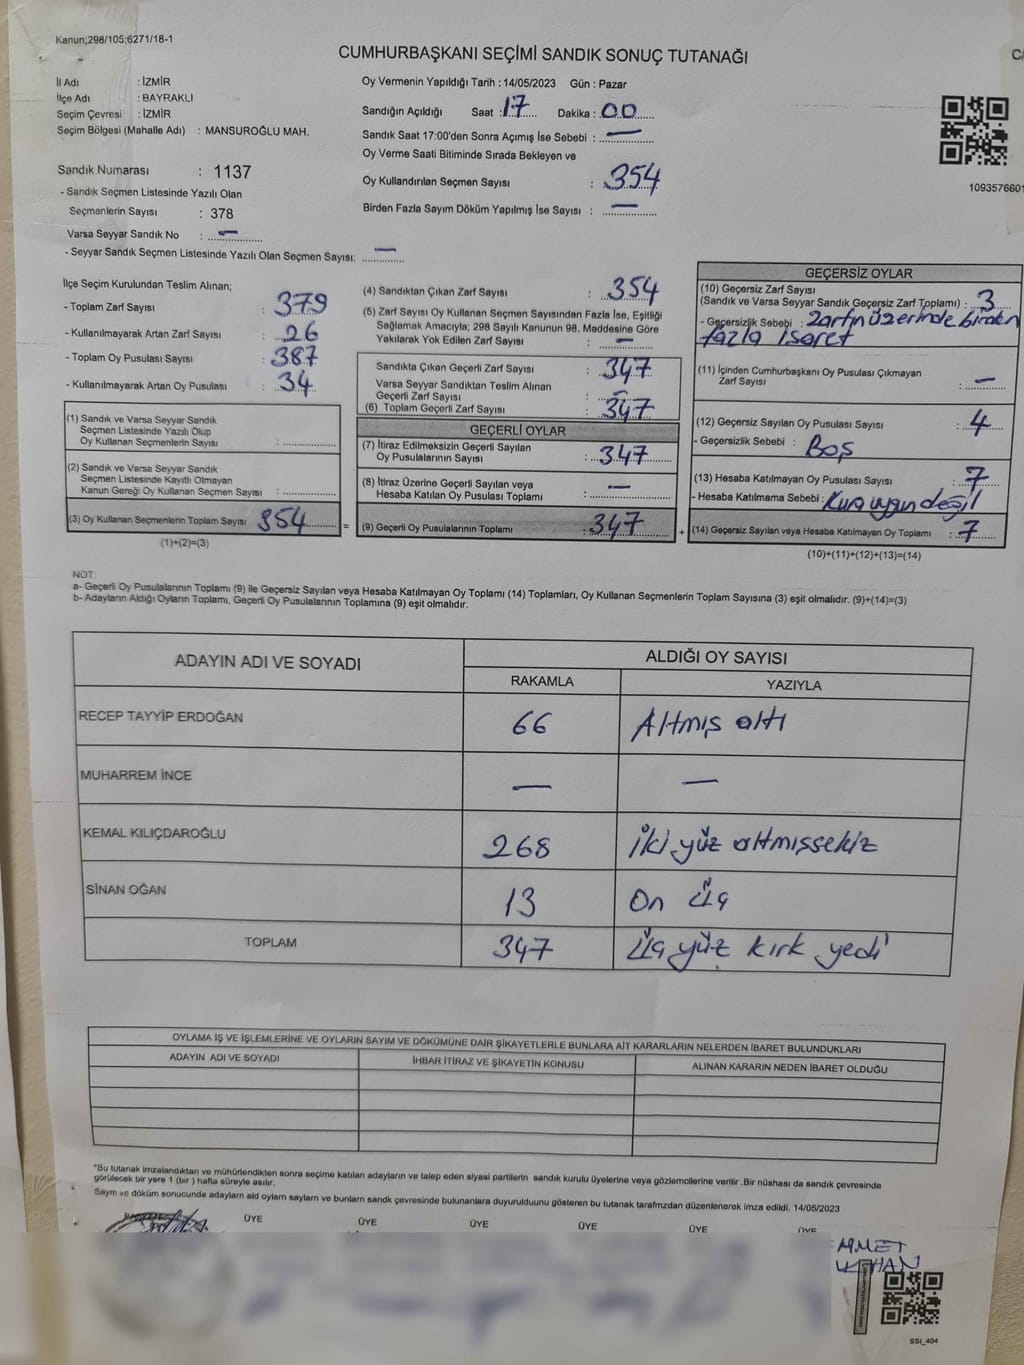 Kanun;298/105;6271/18-1
CUMHURBAŞKANI SEÇİMİ SANDIK SONUÇ TUTANAĞI
İl Adı : İZMİR
İlçe Adı : BAYRAKLI
Seçim Çevresi : İZMİR
Seçim Bölgesi (Mahalle Adı) : MANSUROĞLU MAH.
Sandık Numarası : 1137
- Sandık Seçmen Listesinde Yazılı Olan
Seçmenlerin Sayısı : 378
Varsa Seyyar Sandık No : —
- Seyyar Sandık Seçmen Listesinde Yazılı Olan Seçmen Sayısı: —
Oy Vermenin Yapıldığı Tarih : 14/05/2023 Gün : Pazar
Sandığın Açıldığı Saat : 17 Dakika : 00
Sandık Saat 17:00'den Sonra Açımış İse Sebebi : —
Oy Verme Saati Bitiminde Sırada Bekleyen ve
Oy Kullandırılan Seçmen Sayısı : 354
Birden Fazla Sayım Döküm Yapılmış İse Sayısı : —
1093576601
İlçe Seçim Kurulundan Teslim Alınan;
- Toplam Zarf Sayısı : 379
- Kullanılmayarak Artan Zarf Sayısı : 26
- Toplam Oy Pusulası Sayısı : 387
- Kullanılmayarak Artan Oy Pusulası : 34
(1) Sandık ve Varsa Seyyar Sandık
Seçmen Listesinde Yazılı Olup
Oy Kullanan Seçmenlerin Sayısı :
(2) Sandık ve Varsa Seyyar Sandık
Seçmen Listesinde Kayıtlı Olmayan
Kanun Gereği Oy Kullanan Seçmen Sayısı :
(3) Oy Kullanan Seçmenlerin Toplam Sayısı 354 =
(1)+(2)=(3)
(4) Sandıktan Çıkan Zarf Sayısı : 354
(5) Zarf Sayısı Oy Kullanan Seçmen Sayısından Fazla İse, Eşitliği
Sağlamak Amacıyla; 298 Sayılı Kanunun 98. Maddesine Göre
Yakılarak Yok Edilen Zarf Sayısı : —
Sandıkta Çıkan Geçerli Zarf Sayısı : 347
Varsa Seyyar Sandıktan Teslim Alınan
Geçerli Zarf Sayısı : —
(6) Toplam Geçerli Zarf Sayısı : 347
GEÇERLİ OYLAR
(7) İtiraz Edilmeksizin Geçerli Sayılan
Oy Pusulalarının Sayısı : 347
(8) İtiraz Üzerine Geçerli Sayılan veya
Hesaba Katılan Oy Pusulası Toplamı : —
(9) Geçerli Oy Pusulalarının Toplamı : 347 +
GEÇERSİZ OYLAR
(10) Geçersiz Zarf Sayısı
(Sandık ve Varsa Seyyar Sandık Geçersiz Zarf Toplamı) : 3
- Geçersizlik Sebebi : Zarfın üzerinde birden
fazla işaret
(11) İçinden Cumhurbaşkanı Oy Pusulası Çıkmayan
Zarf Sayısı : —
(12) Geçersiz Sayılan Oy Pusulası Sayısı : 4
- Geçersizlik Sebebi : Boş
(13) Hesaba Katılmayan Oy Pusulası Sayısı : 7
- Hesaba Katılmama Sebebi : Kura uygun değil
(14) Geçersiz Sayılan veya Hesaba Katılmayan Oy Toplamı : 7
(10)+(11)+(12)+(13)=(14)
NOT:
a- Geçerli Oy Pusulalarının Toplamı (9) ile Geçersiz Sayılan veya Hesaba Katılmayan Oy Toplamı (14) Toplamları, Oy Kullanan Seçmenlerin Toplam Sayısına (3) eşit olmalıdır. (9)+(14)=(3)
b- Adayların Aldığı Oyların Toplamı, Geçerli Oy Pusulalarının Toplamına (9) eşit olmalıdır.
ADAYIN ADI VE SOYADI ALDIĞI OY SAYISI
RAKAMLA YAZIYLA
RECEP TAYYİP ERDOĞAN 66 Altmış altı
MUHARREM İNCE — —
KEMAL KILIÇDAROĞLU 268 İki yüz altmışsekiz
SİNAN OĞAN 13 On üç
TOPLAM 347 Üç yüz kırk yedi
OYLAMA İŞ VE İŞLEMLERİNE VE OYLARIN SAYIM VE DÖKÜMÜNE DAİR ŞİKAYETLERLE BUNLARA AİT KARARLARIN NELERDEN İBARET BULUNDUKLARI
ADAYIN ADI VE SOYADI İHBAR İTİRAZ VE ŞİKAYETİN KONUSU ALINAN KARARIN NEDEN İBARET OLDUĞU
*Bu tutanak imzalandıktan ve mühürlendikten sonra seçime katılan adayların ve talep eden siyasi partilerin sandık kurulu üyelerine veya gözlemcilerine verilir .Bir nüshası da sandık çevresinde
görülecek bir yere 1 (bir ) hafta süreyle asılır.
Sayım ve döküm sonucunda adayların ald oyların sayların ve bunların sandk çevresinde bulunanlara duyurulduunu gösteren bu tutanak tarafmzdan düzenlenerek imza edildi. 14/05/2023
ÜYE ÜYE ÜYE ÜYE ÜYE ÜYE
SSI_404